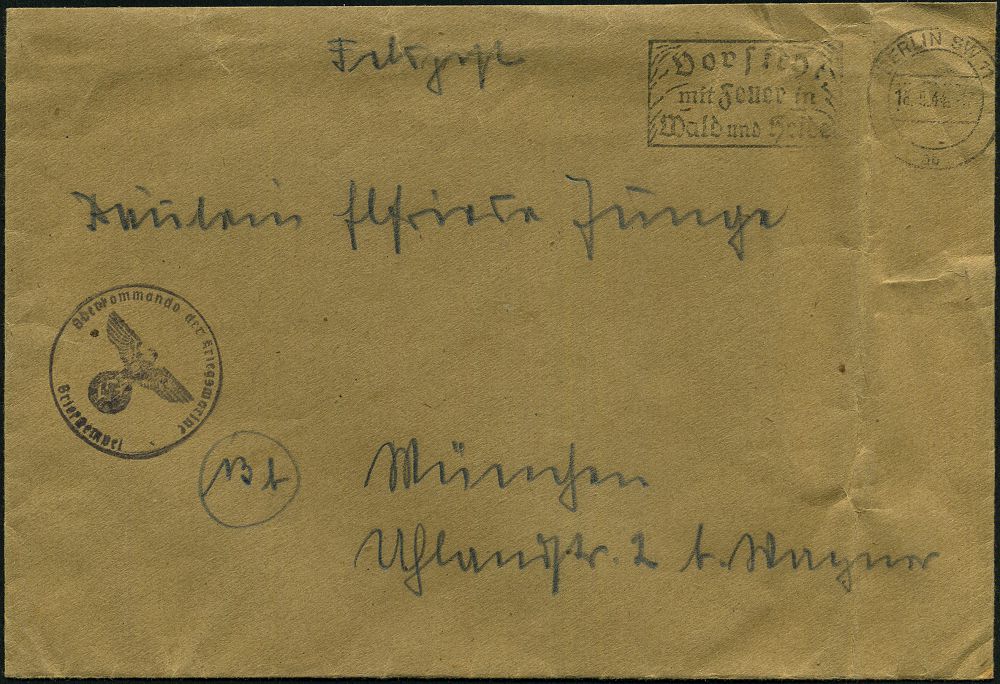 Feldpost
Vorsicht
mit Feuer in
Wald und Heide
BERLIN SW 11
Fräulein Elfriede Junge
Oberkommando der Kriegsmarine
Briefstempel
13b
München
Uhlandstr. 2 b. Wagner